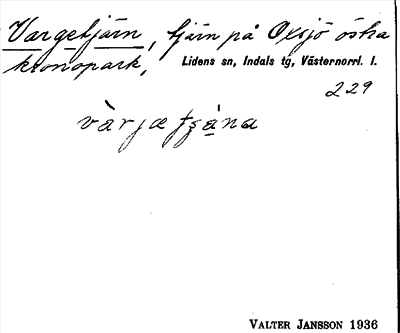 Vargetjärn, tjärn på Oxsjö östra
kronopark,
Lidens sn, Indals tg, Västernorrl. l.
229
vàrjæ tʂä̀na
VALTER JANSSON 1936